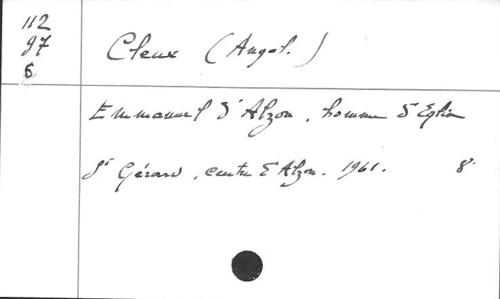 112
97
5
Cleux (Angel.)
Emmanuel d'Alzon, homme d'Eglise
St Gérard, centre d'Alzon. 1961. 8°